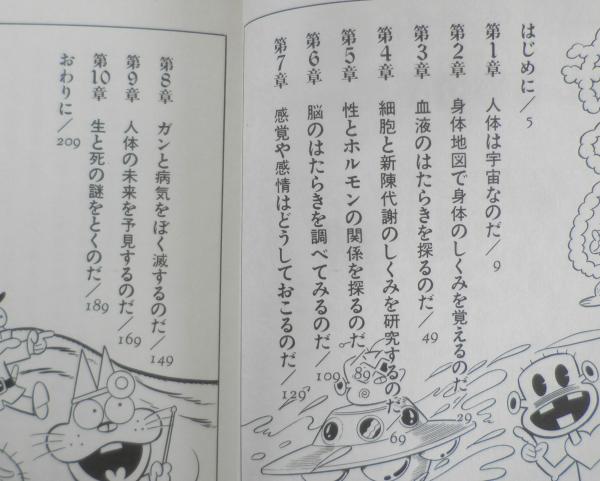 はじめに／5
第1章 人体は宇宙なのだ／9
第2章 身体地図で身体のしくみを覚えるのだ／29
第3章 血液のはたらきを探るのだ／49
第4章 細胞と新陳代謝のしくみを研究するのだ／69
第5章 性とホルモンの関係を探るのだ／89
第6章 脳のはたらきを調べてみるのだ／109
第7章 感覚や感情はどうしておこるのだ／129
第8章 ガンと病気をぼく滅するのだ／149
第9章 人体の未来を予見するのだ／169
第10章 生と死の謎をとくのだ／189
おわりに／209